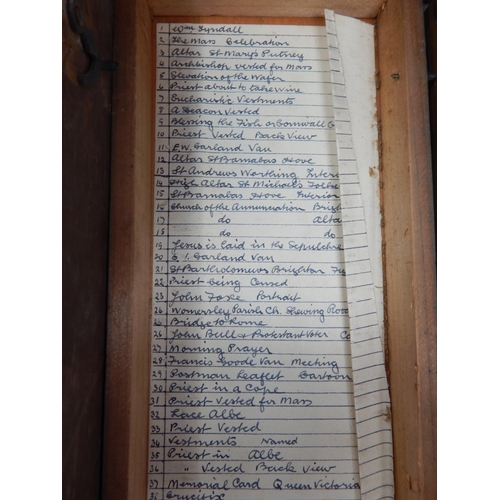 1 Wm Tyndall
2 The Mass Celebration
3 Altar St Marys Putney
4 Archbishop vested for Mass
5 Elevation of the Wafer
6 Priest about to take Wine
7 Eucharistic Vestments
8 A Deacon Vested
9 Blessing the Fish or Cornwall
10 Priest Vested Back View
11 E.W. Garland Van
12 Altar St Barnabas Hove
13 St Andrews Worthing Interi
14 High Altar St Michaels
15 St Barnabas Hove Interior
16 Church of the Annunciation Brigh
17 do Alta
18 do do
19 Jesus is laid in the Sepulchre
20 Garland Van
21 St Bartholomews Brighton
22 Priest being Censed
23 John Foxe Portrait
24 Womersley Parish Ch. Shewing Roo
25 Bridge to Rome
26 John Bull & Protestant Voter
27 Morning Prayer
28 Francis Goode Van Meeting
29 Postman Leaflet Cartoon
30 Priest in a Cope
31 Priest Vested for Mass
32 Lace Albe
33 Priest Vested
34 Vestments Named
35 Priest in Albe
36 " Vested Back View
37 Memorial Card Queen Victoria
38 Crucifix